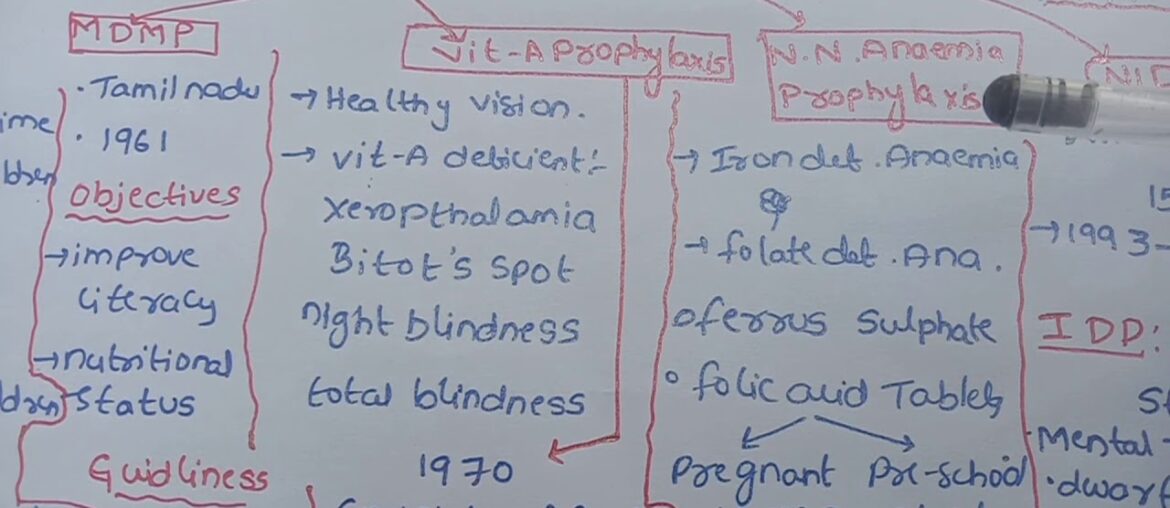 MDMP
. Tamilnadu
. 1961
Objectives
→ improve
literacy
→ nutritional
status
Guidliness
Vit-A Prophylaxis
→ Healthy vision.
→ vit-A deficient:-
xeropthalamia
Bitot's spot
night blindness
total blindness
1970
N.N. Anaemia
Prophylaxis
→ Iron def. Anaemia
→ folate def. Ana.
o ferrus sulphate
o folic acid Tablets
Pregnant Pre-school
→ 1993-
IDD:
Mental
. dwarf